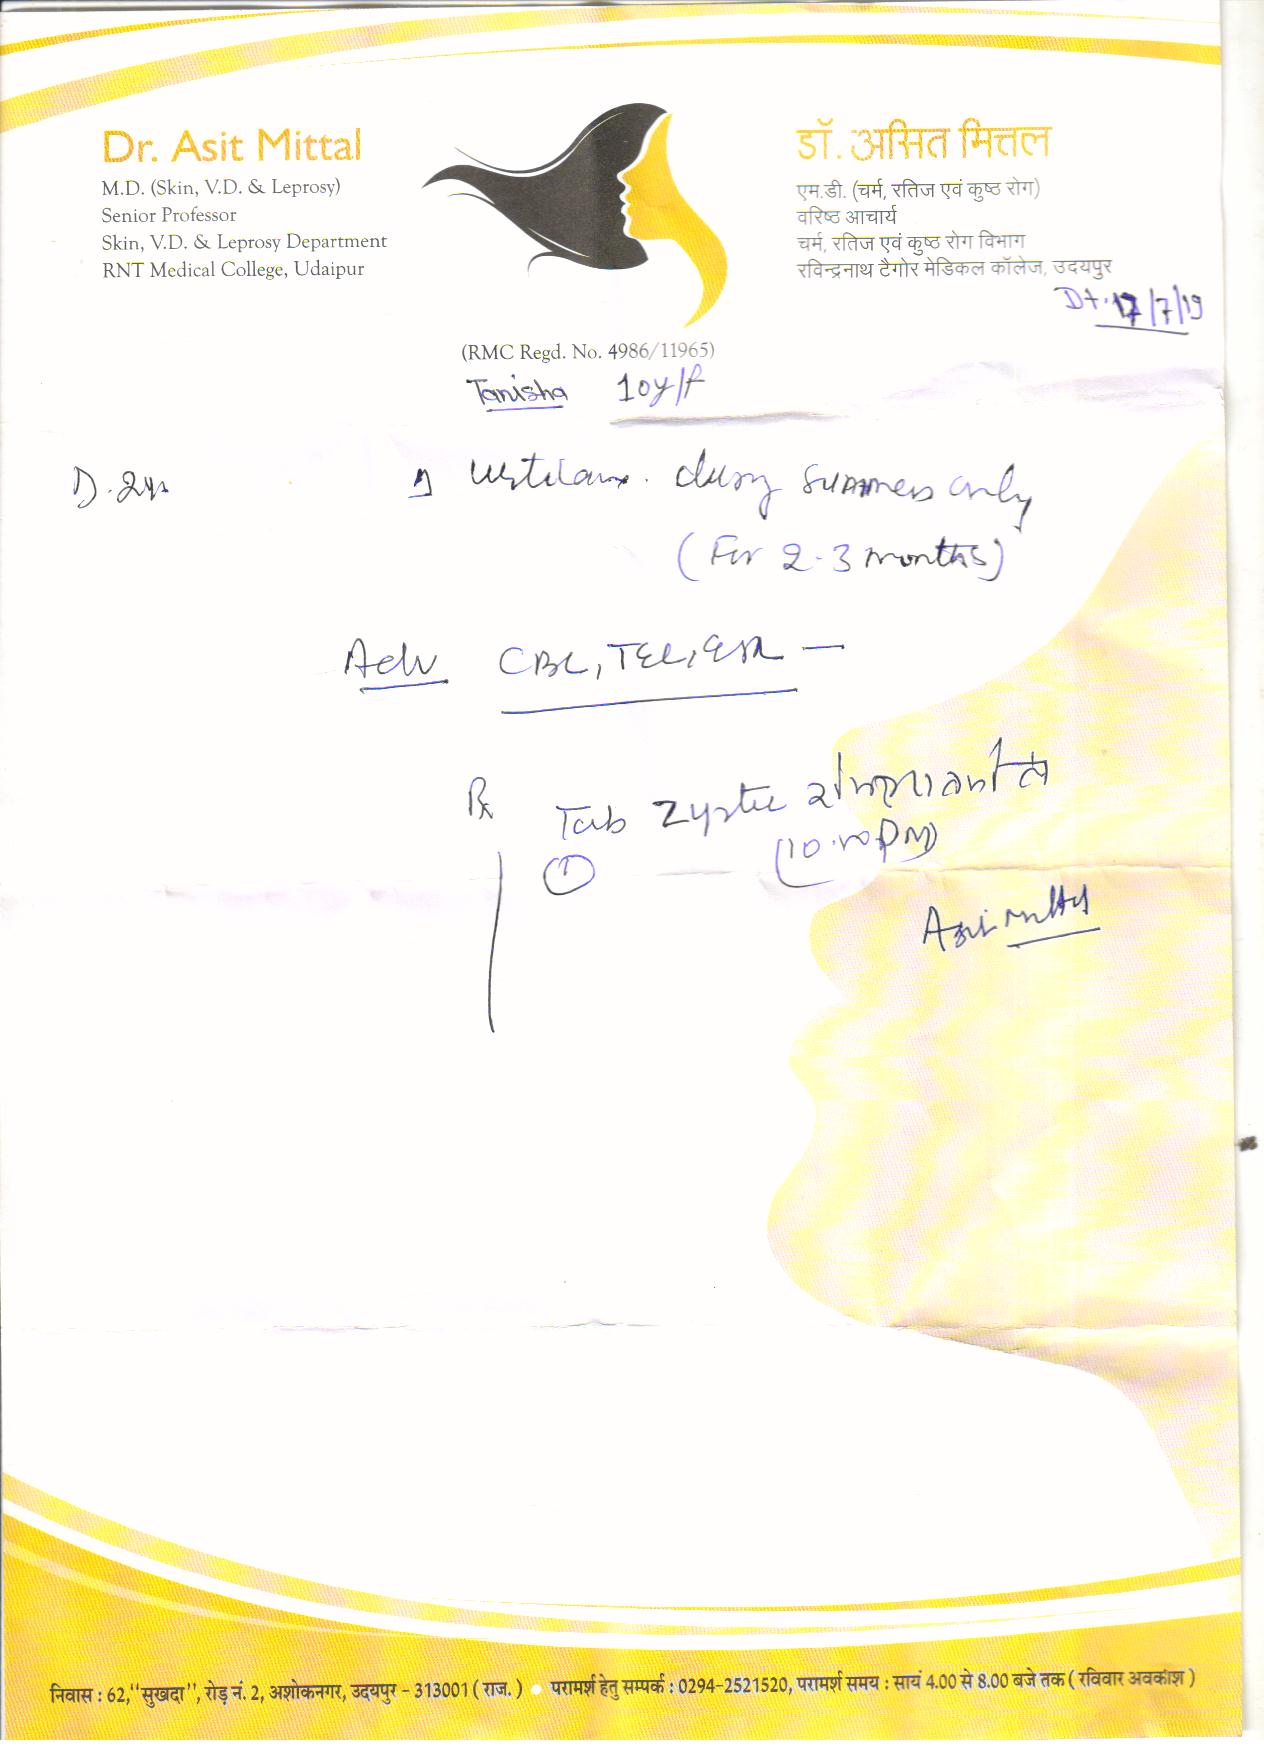 Dr. Asit Mittal
M.D. (Skin, V.D. & Leprosy)
Senior Professor
Skin, V.D. & Leprosy Department
RNT Medical College, Udaipur
डॉ. असित मित्तल
एम.डी. (चर्म, रतिज एवं कुष्ठ रोग)
वरिष्ठ आचार्य
चर्म, रतिज एवं कुष्ठ रोग विभाग
रविन्द्रनाथ टैगोर मेडिकल कॉलेज, उदयपुर
Dt. 17/7/19
(RMC Regd. No. 4986/11965)
Tanisha 10y/f
D. 2yr
summers only
(For 2-3 months)
Adv CBC, TEC, ESR —
Rx Tab
①
निवास : 62,"सुखदा", रोड़ नं. 2, अशोकनगर, उदयपुर - 313001 ( राज. ) • परामर्श हेतु सम्पर्क : 0294-2521520, परामर्श समय : सायं 4.00 से 8.00 बजे तक ( रविवार अवकाश )